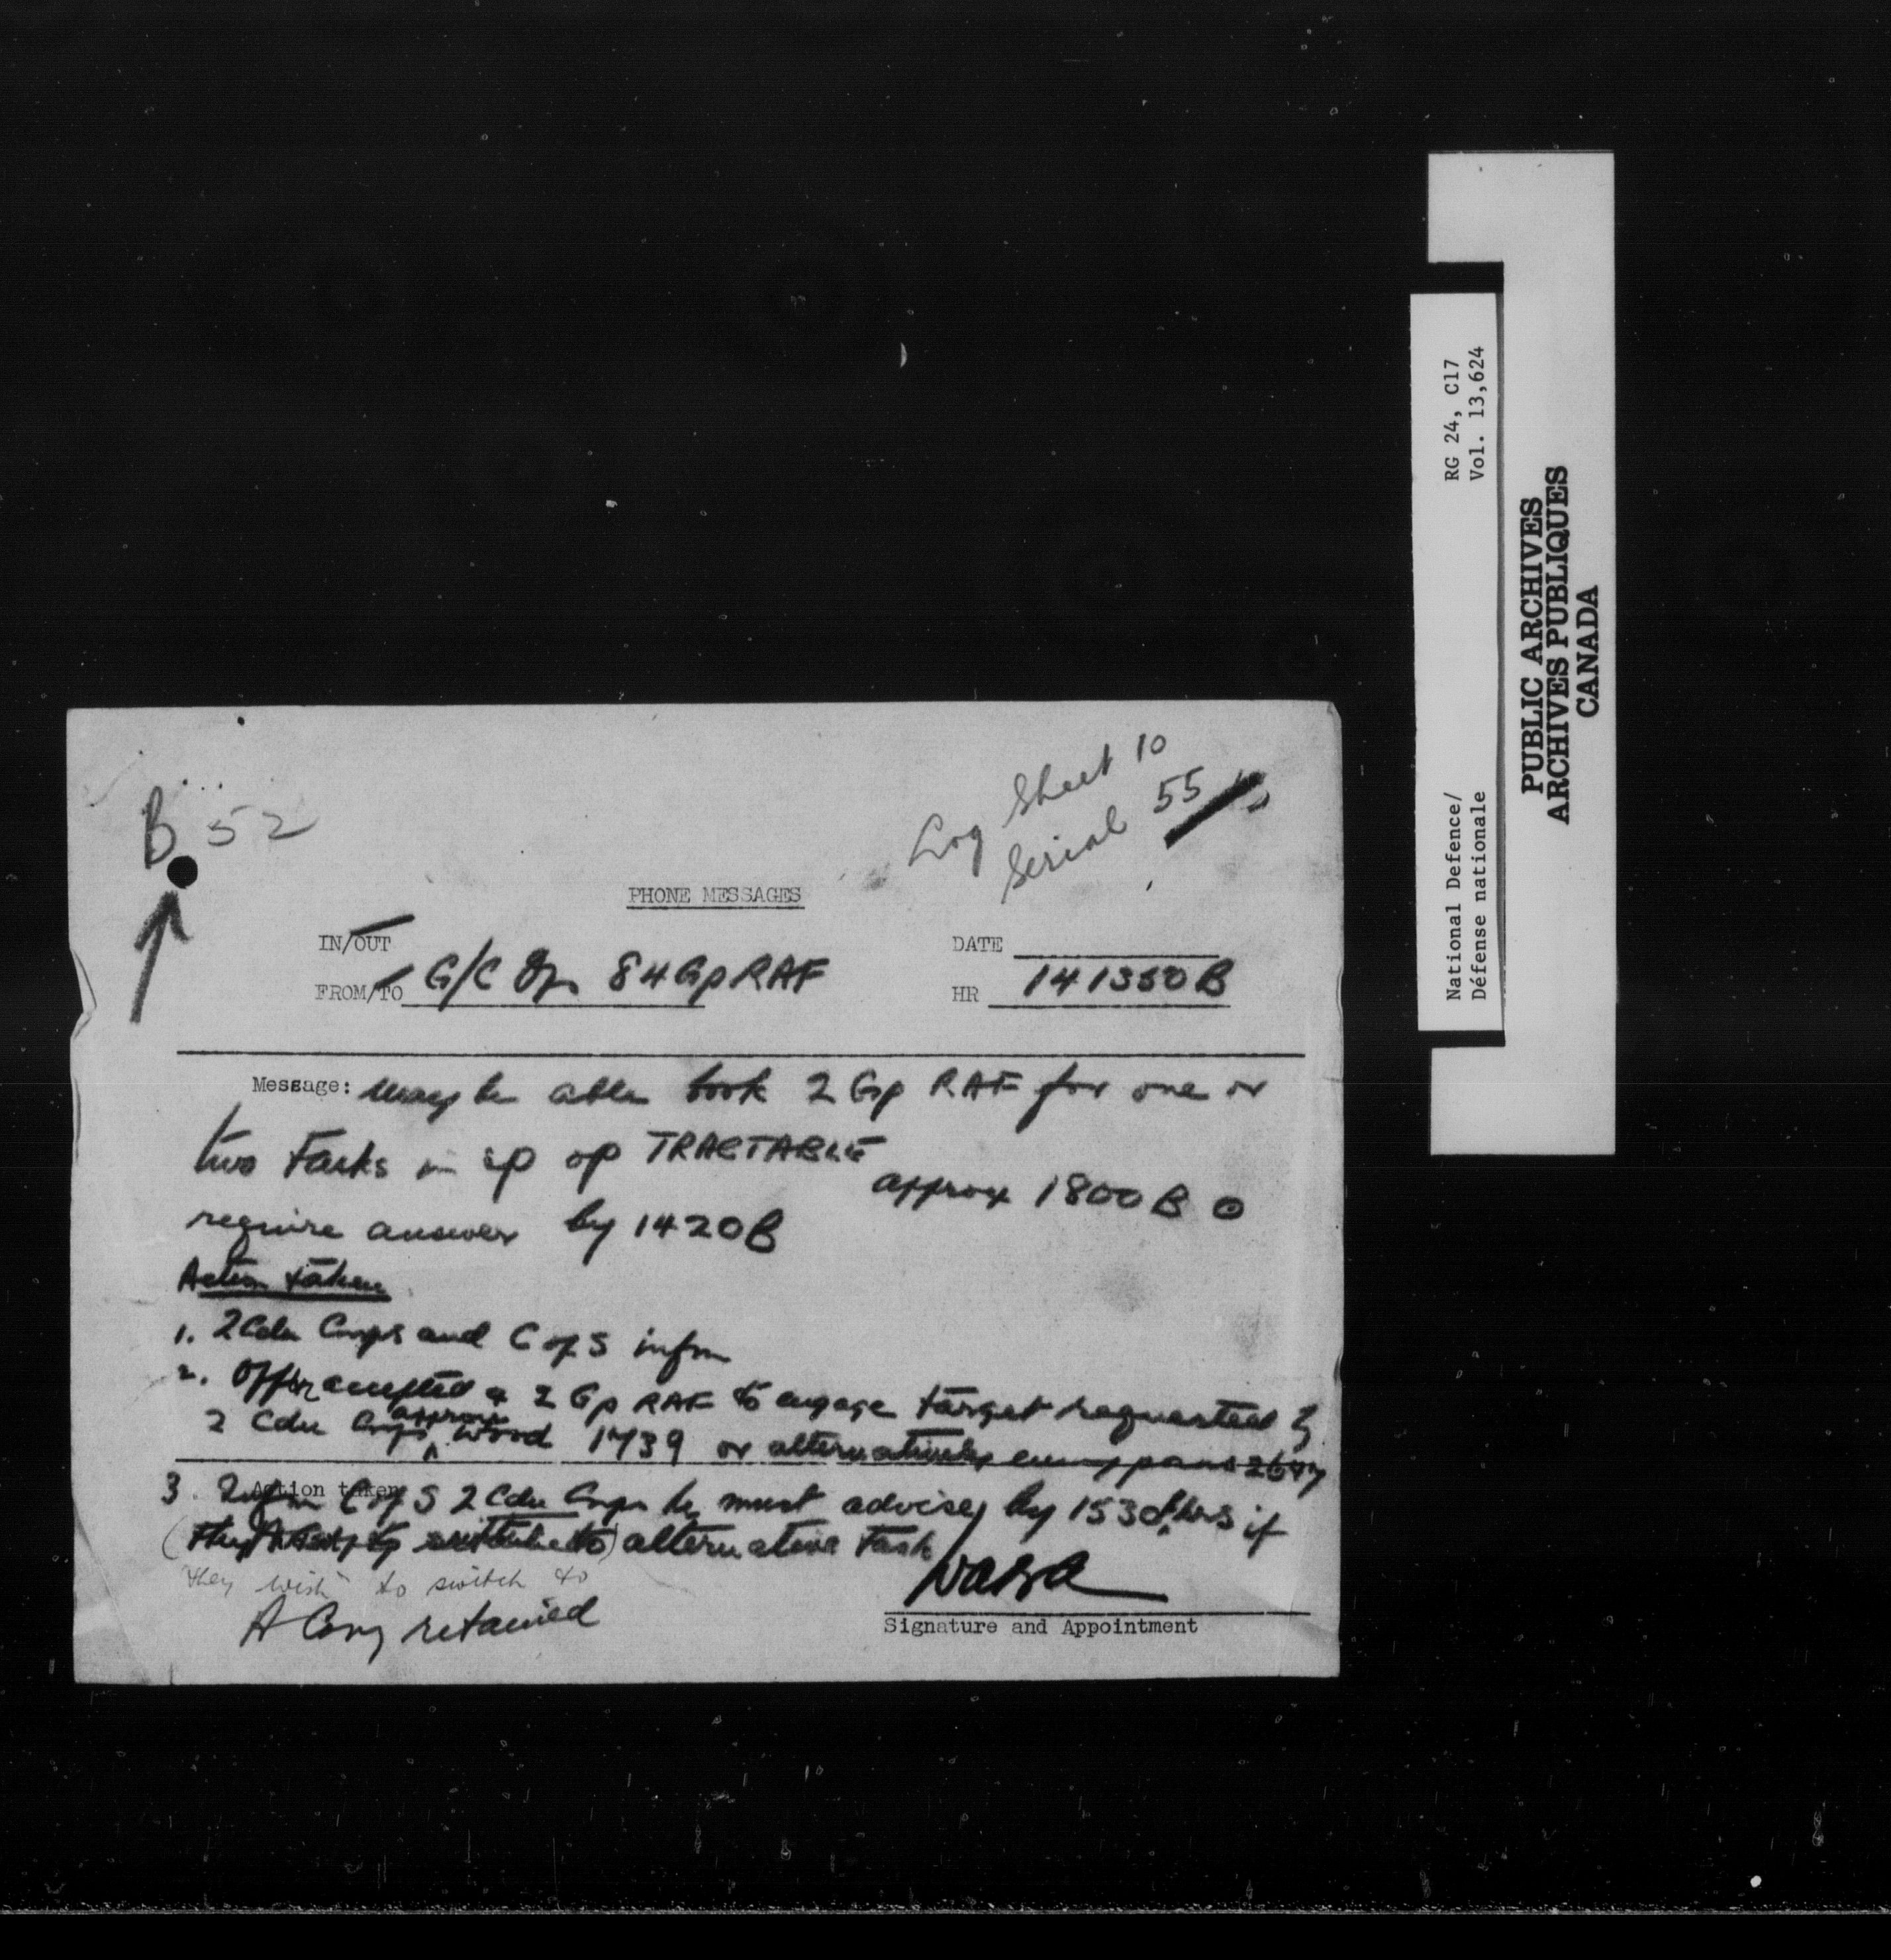 B 52
Log Sheet 10
Serial 55
PHONE MESSAGES
IN/OUT
DATE
FROM/TO G/C Ops 84 Gp RAF
HR 141350B
Message: May be able book 2 Gp RAF for one or
two tasks in sp op TRACTABLE
approx 1800 B
require answer by 1420B
Action taken
1. 2 Cdn Corps and C of S infm
2. Offer accepted & 2 Gp RAF to engage target requested by
approx
2 Cdn Corps wood 1739 or alternatively
Action taken
3. C of S 2 Cdn Corps he must advise by 1530 hrs if
alternative task
they wish to switch to
A Copy retained
Signature and Appointment
RG 24, C17
Vol. 13,624
National Defence/
Défense nationale
PUBLIC ARCHIVES
ARCHIVES PUBLIQUES
CANADA